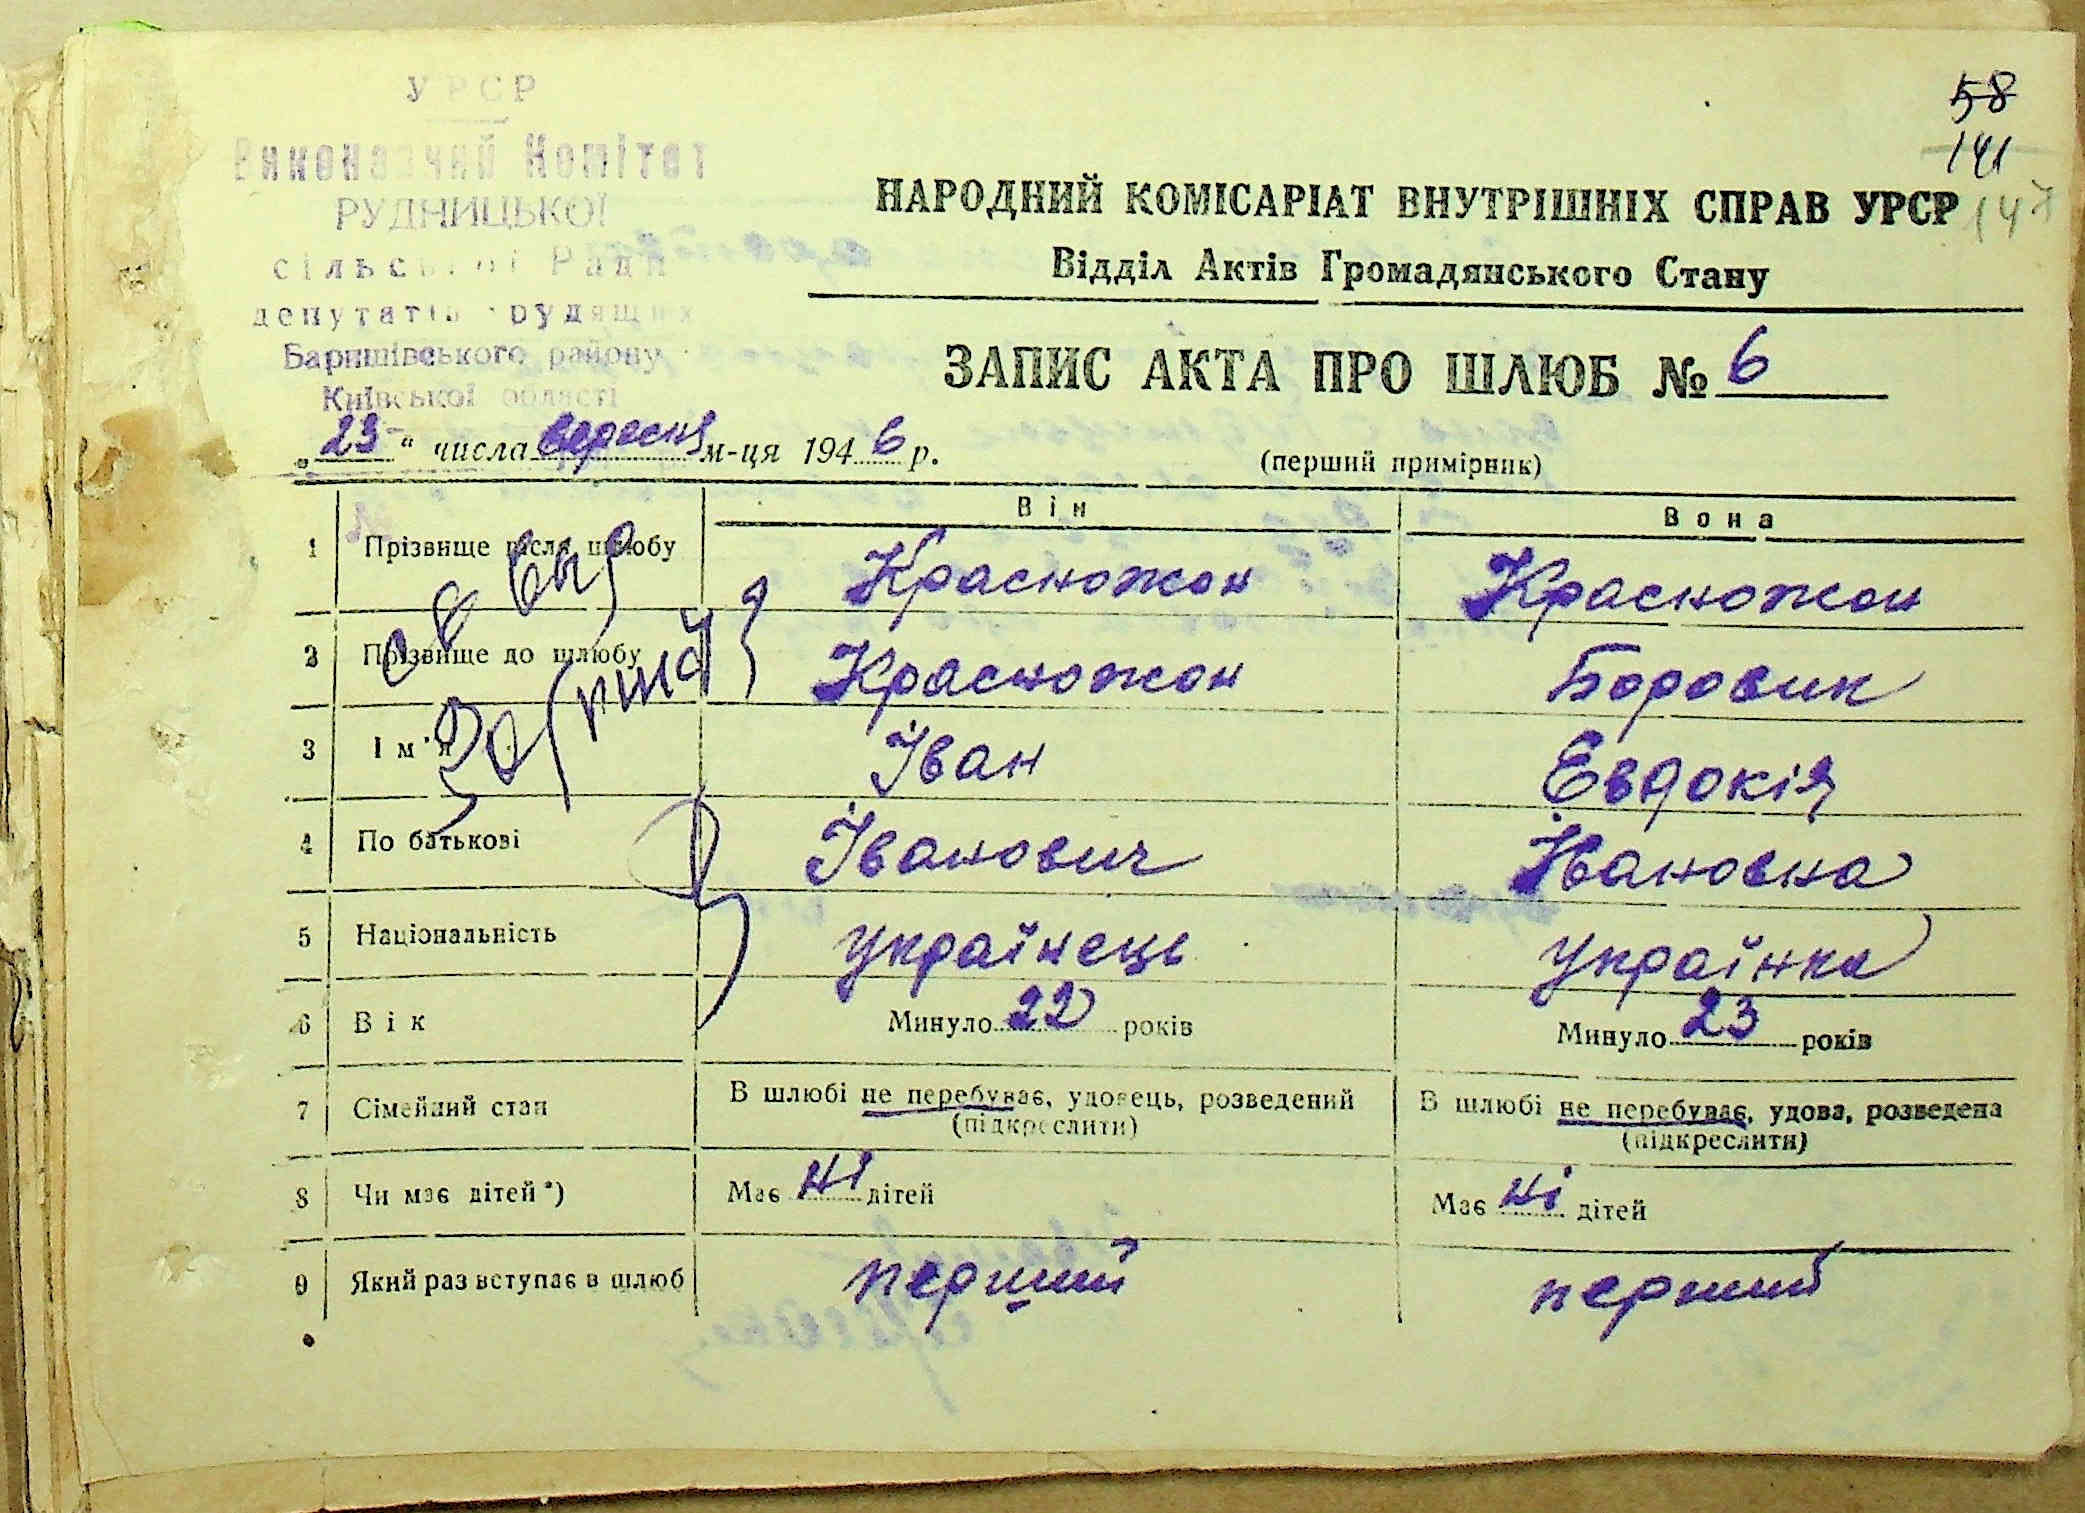 УРСР
Виконавчий Комітет
РУДНИЦЬКОЇ
сільської Ради
депутатів трудящих
Баришівського району
Київської області
58
141
147
НАРОДНИЙ КОМІСАРІАТ ВНУТРІШНІХ СПРАВ УРСР
Відділ Актів Громадянського Стану
ЗАПИС АКТА ПРО ШЛЮБ № 6
„23“ числа вересня м-ця 1946 р.
(перший примірник)
Він Вона
1 Прізвище після шлюбу Красножон Красножон
2 Прізвище до шлюбу Красножон Боровик
3 Ім'я Іван Евдокія
4 По батькові Іванович Івановна
5 Національність Українець Українка
6 Вік Минуло 22 років Минуло 23 років
7 Сімейний стан В шлюбі не перебуває, удовець, розведений В шлюбі не перебуває, удова, розведена
(підкреслити) (підкреслити)
8 Чи має дітей*) Має ні дітей Має ні дітей
9 Який раз вступає в шлюб перший перший